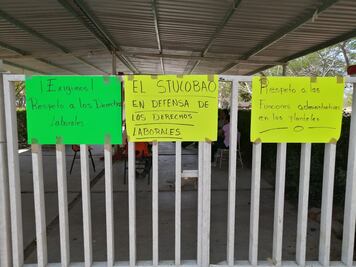 ¡Exigimos!
Respeto a los Derechos
laborales
EL STUCOBAO
EN DEFENSA DE
LOS DERECHOS
LABORALES
Respeto a las
Funciones administrativas
en los planteles